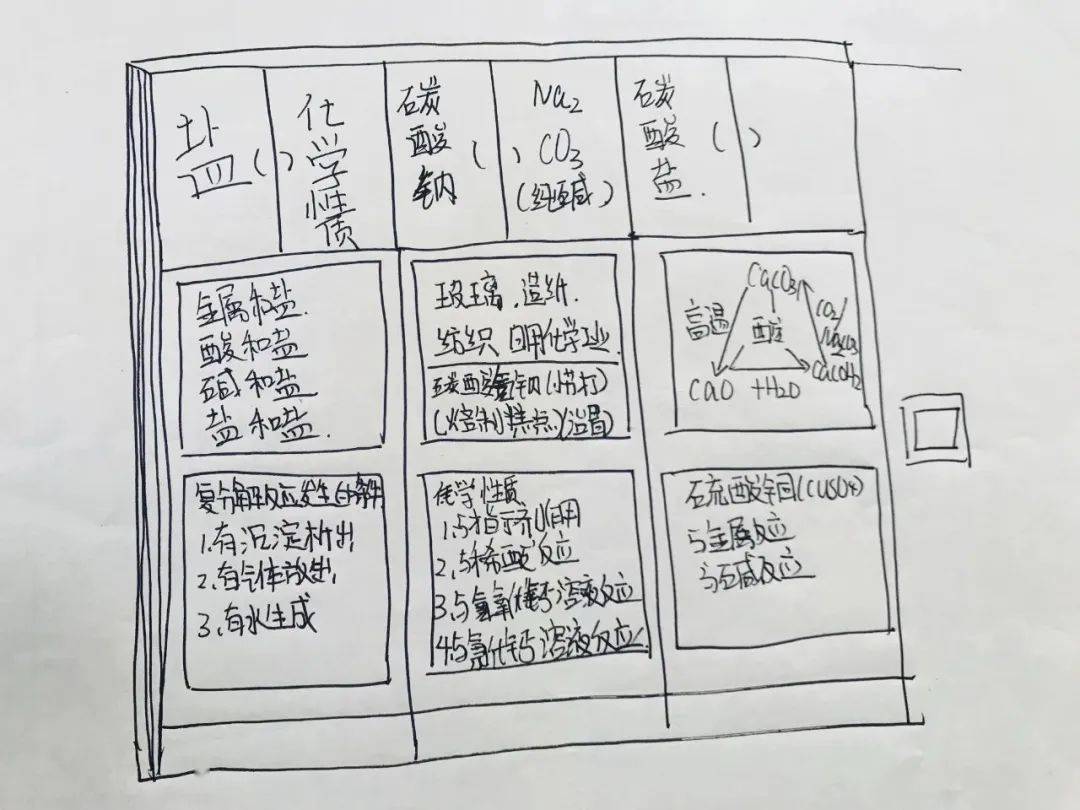 盐( )化学性质
碳酸钠( )Na₂CO₃
(纯碱)
碳酸盐( )
金属和盐
酸和盐
碱和盐
盐和盐
复分解反应发生的条件
1.有沉淀析出
2.有气体放出
3.有水生成
玻璃.造纸.
纺织 日用化学工业
碳酸氢钠(小苏打)
(焙制糕点)
化学性质
1.与指示剂作用
2.与稀酸反应
3.与氢氧化钙溶液反应
4.与氯化钙溶液反应
CaCO₃
高温
酸
CO₂/
Na₂CO₃
CaO +H₂O
CaOH₂
硫酸铜(CuSO₄)
与金属反应
与碱反应